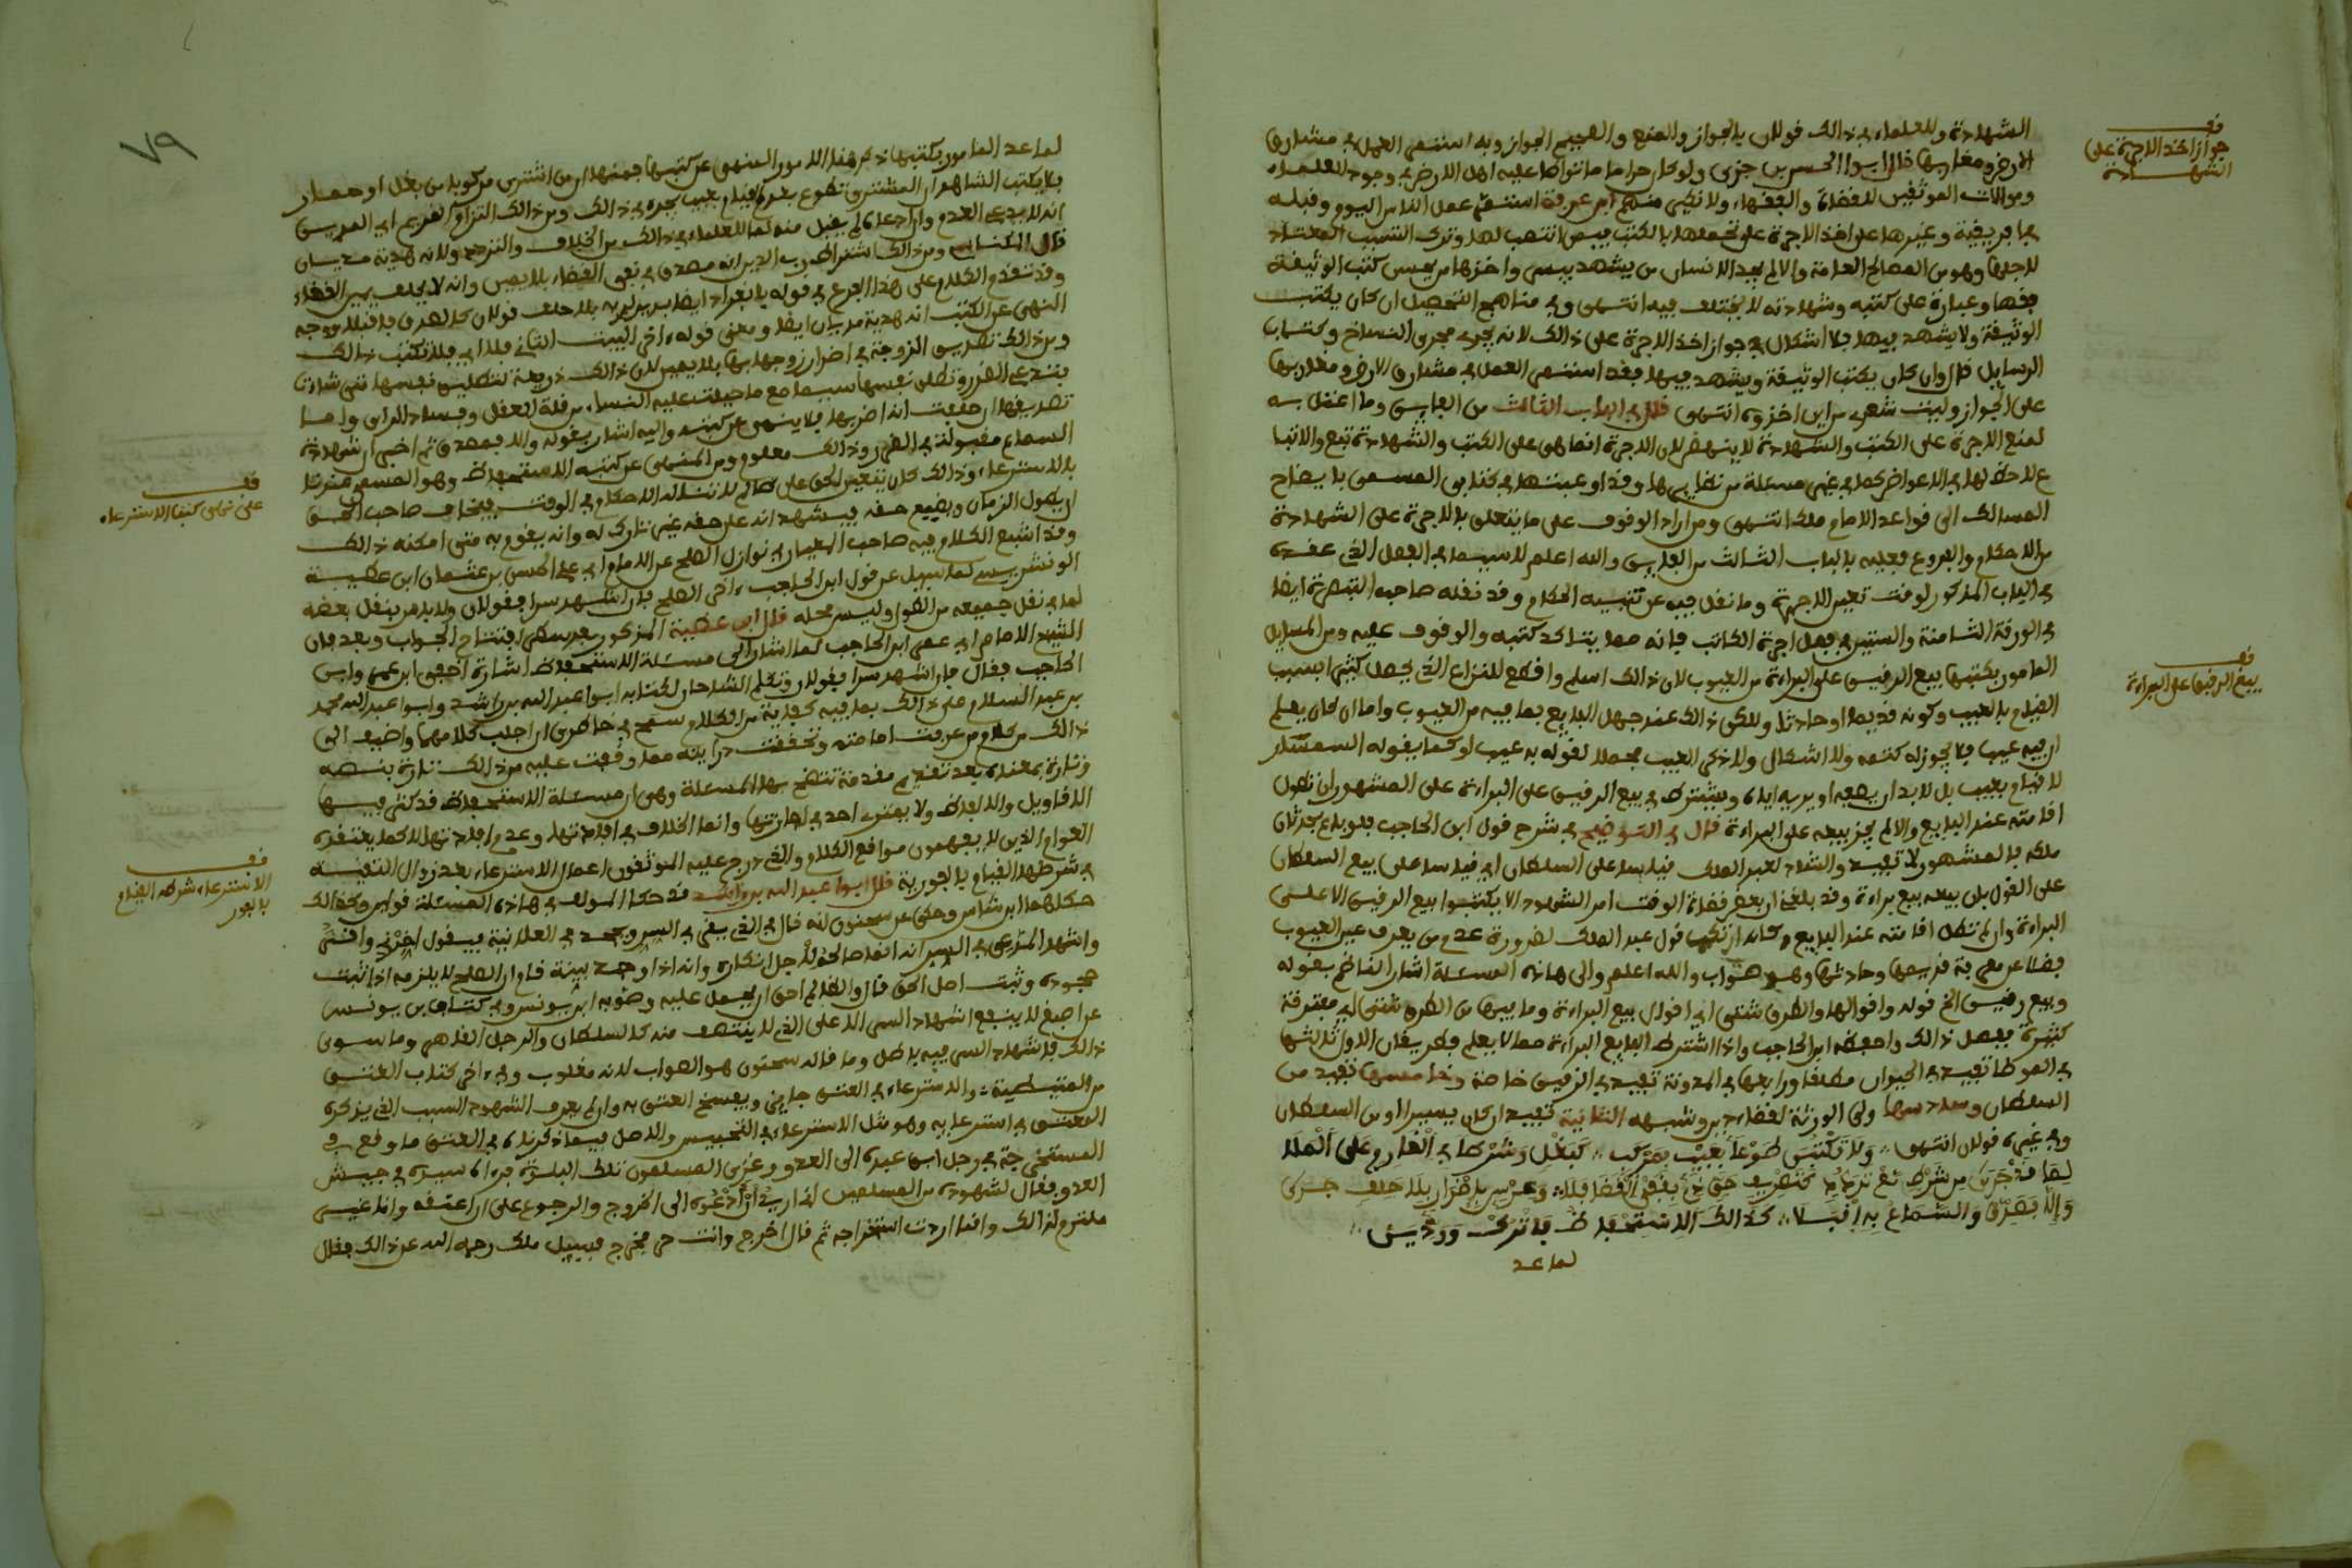 الشهادة وللعلماء في ذالك قولان بالجواز والمنع والصحيح الجواز وبه استمر العمل في مشارق
الارض ومغاربها قال ابو الحسن بن جزي ولو كان حراما ما تواطا عليه اهل الارض في وجود العلماء
وموالات الموثقين للقضاة والفقهاء ولا نكير منهم ابن عرفة استمر عمل الناس اليوم وقبله
بافريقية وغيرها على اخذ الاجرة على تحملها بالكتب فيمن انتصب لها وترك التسبب المعتاد
لاجلها وهو من المصالح العامة والا لم يجد الانسان من يشهد بيسر واخذها من يحسن كتب الوثيقة
فقها وعبارة على كتبه وشهادته لا يختلف فيه انتهى وفي مناهج التحصيل ان كان يكتب
الوثيقة ولا يشهد فيها فلا اشكال في جواز اخذ الاجرة على ذالك لانه يجري مجرى النساخ وكتاب
الرسايل قال وان كان يكتب الوثيقة ويشهد فيها فقد استمر العمل في مشارق الارض ومغاربها
على الجواز وليت شعري من اين اخذوه انتهى قلت في الباب الثالث من الفايق وما اعتل به
لمنع الاجرة على الكتب والشهادة لا ينهض لان الاجرة انما هي على الكتب والشهادة تبع والاتبا
ع لا حظ لها في الاعواض كما في غير مسئلة من نظايرها وقد اوعبتها في كتابي المسمى بايضاح
المسالك الى قواعد الامام ملك انتهى ومن اراد الوقوف على ما يتعلق بالاجرة على الشهادة
من الاحكام والفروع فعليه بالباب الثالث من الفايق والله اعلم لاسيما في الفصل الذي عقده
في الباب المذكور لوقت تعيين الاجرة وما نقل فيه عن تنبيه الحكام وقد نقله صاحب التبصرة ايضا
في الورقة الثامنة والستين في فصل اجرة الكاتب فانه مما يتاكد كتبه والوقوف عليه ومن المسايل
المامور بكتبها بيع الرقيق على البراءة من العيوب لان ذالك اسلم واقطع للنزاع الذي يحصل كثيرا بسبب
القيام بالعيب وكونه قديما او حادثا ولكن ذالك عند جهل البايع بما فيه من العيوب واما ان كان يعلم
ان فيه عيبا فلا يجوز له كتمه ولا اشكال ولا ذكر العيب مجملا لقوله به عيب او كما يقوله السمسار
لا قيام بعيب بل لابد ان يصفه او يريه اياه ويشترط في بيع الرقيق على البراءة على المشهور ان تطول
اقامته عند البايع والا لم يجز بيعه على البراءة قال في التوضيح في شرح قول ابن الحاجب فلو باع بحدثان
ملكه فالمشهور لا تفيد والشاذ لعبد الملك قياسا على السلطان اي قياسا على بيع السلطان
على القول بان بيعه بيع براءة وقد بلغنا ان بعض قضاة الوقت امر الشهود الا يكتبوا بيع الرقيق الا على
البراءة وان لم تطل اقامته عند البايع وكانه ارتكب قول عبد الملك لضرورة عدم من يعرف عين العيوب
فضلا عن معرفة قديمها وحادثها وهو صواب والله اعلم والى هاذه المسئلة اشار الناظم بقوله
وبيع رقيق الخ قوله واقوالها والطرق شتى اي اقوال بيع البراءة وما فيها من الطرق شتى اي مفترقة
كثيرة بعض ذالك واحفظه ابن الحاجب واذا اشترط البايع البراءة مما لا يعلم فطريقان الاول ثالثها
في الموطا تفيد في الحيوان مطلقا ورابعها في المدونة تفيد في الرقيق خاصة وخامسها تفيد من
السلطان وسادسها ومن الورثة لقضاء دين وشبهه الثانية تفيد ان كان يسيرا او من السلطان
وفي غيره قولان انتهى، وَلا تكْتُبَنْ طَوْعاً بِعَيْبِ بمركب، كَبَغْلٍ وَشَرْط في الْغَارِمِ عَلى الْمَلا
وَإِلا بَصِّرَنْ والسَّمَاعَ بِهِ اقْبَلا، كَذَالكَ الاسْتِحْفَاظُ فَاتْرُكْ
لما عد
فف
جواز اخذ الاجرة على
الشهادة
فف
بيع الرقيق على البراءة
٧٩
لما عد المامور بكتبها ذكر هنا الامور المنهي عن كتبها فمنها ان من اشترى مركوبا من بغل او حمار
فلا يكتب الشاهد ان المشتري تطوع بعدم القيام بعيب يجده في ذالك ومن ذالك التزام الغريم اي المدين
انه لا يدعي العدم وان ادعاه لم يقبل منه لما للعلماء في ذالك من الخلاف
ومن ذالك اشتراط رب الدين انه مصدق في نفي القضاء بلا يمين وانه لا يحلف يمين القضاء
وقد تقدم الكلام على هذا الفرع في قوله
النهي عن الكتب انه هدية مديان ايضا ومعنى قوله اخر البيت الثاني فلا اي فلا تكتب ذالك
ومن ذالك تصديق الزوجة في اضرار زوجها بها بلا يمين لان ذالك ذريعة لتطليق نفسها متى شاءت
فتدعي الضرر وتطلق نفسها سيما مع ما جبلت عليه النساء من قلة العقل وفساد الراي واما
تصديقها ان حلفت انه اضر بها فلا ينهى عن كتبه واليه اشار بقوله والا فصدق ثم اخبر ان شهادة
السماع مقبولة في الضرر وذالك معلوم ومن المنهي عن كتبه الاستحفاظ وهو المسمى عندنا
بالاسترعاء وذالك كان يتعين الحق على ظالم لا تناله الاحكام في الوقت فيخاف صاحب الحق
ان يطول الزمان ويضيع حقه فيشهد انه على حقه غير تارك له وانه يقوم به متى امكنه ذالك
وقد اشبع الكلام فيه صاحب المعيار في نوازل الصلح عن الامام ابي علي الحسن بن عثمان ابن عطية
الونشريسي لما سيل عن قول ابن الحاجب اخر الصلح فان اشهد سرا فقولان ولابد من نقل بعضه
لما في نقل جميعه من الطول وليس محله قال ابن عطية المذكور بعد سطر افتتاح الجواب وبعد فان
الشيخ الامام ابي عمرو ابن الحاجب لما اشار الى مسئلة الاستحفاظ اشارة
الحاجب فقال فان اشهد سرا فقولان وتكلم الشارحان لكتابه ابو عبد الله بن راشد وابو عبد الله محمد
بن عبد السلام على ذالك بما فيه كفاية من الكلام سنح في خاطري ان اجلب كلامهما واضيف الى
ذالك من كلام من عرفت امامته وتحققت درايته مما وقفت عليه من ذالك تارة بنصه
وتارة بمعناه بعد تقديم مقدمة تتضح بها المسئلة وهي ان مسئلة الاستحفاظ قد كثر فيها
الاقاويل والالفاظ ولا يمتري احد في اجازتها وانما الخلاف في افادتها وعدم افادتها لا كما يعتقده
العوام الذين لا يفهمون مواقع الكلام والذي درج عليه الموثقون اعمال الاسترعاء بعد زوال التقية
في شرطها القيام بالفورية قال ابو عبد الله بن راشد قد حكا المولف في هاذه المسئلة قولين وكذالك
حكاهما ابن شاس وحكى عن سحنون انه قال في الذي يقر في السر ويجحد في العلانية فيقول اخرني واقر
واشهد المدعي في السر انه انما صالحه لاجل انكاره وانه اذا وجد بينة قام ان الصلح لا يلزمه اذا ثبت
جحوده وثبت اصل الحق قال والظالم احق ان يحمل عليه وصوبه ابن يونس وفي كتاب ابن يونس
عن اصبغ لا ينفع اشهاد السر الا على الذي لا ينتصف منه كالسلطان والرجل القاهر وما سوى
ذالك فاشهاد السر فيه باطل وما قاله سحنون هو الصواب لانه مغلوب وفي اخر كتاب العتق
من المتيطية، والاسترعاء في العتق جايز ويفسخ العتق به وان لم يعرف الشهود السبب الذي يذكره
المعتق في استرعايه وهو مثل الاسترعاء في التحبيس والاصل فيما ذكرناه في العتق ما وقع في
المستخرجة في رجل ابق عبده الى العدو وغزى المسلمون تلك البلدة فراه سيده في جيش
العدو فقال لشهود من المسلمين اني اريد ان ادعوه الى الخروج والرجوع على ان اعتقه وانا غير
ملتزم لذالك وانما اردت استخراجه ثم قال اخرج وانت حر فخرج فسيل ملك رحمه الله عن ذالك فقال
فف
على نهي كتب الاسترعاء
فف
الاسترعاء شرطه القيام
بالفور